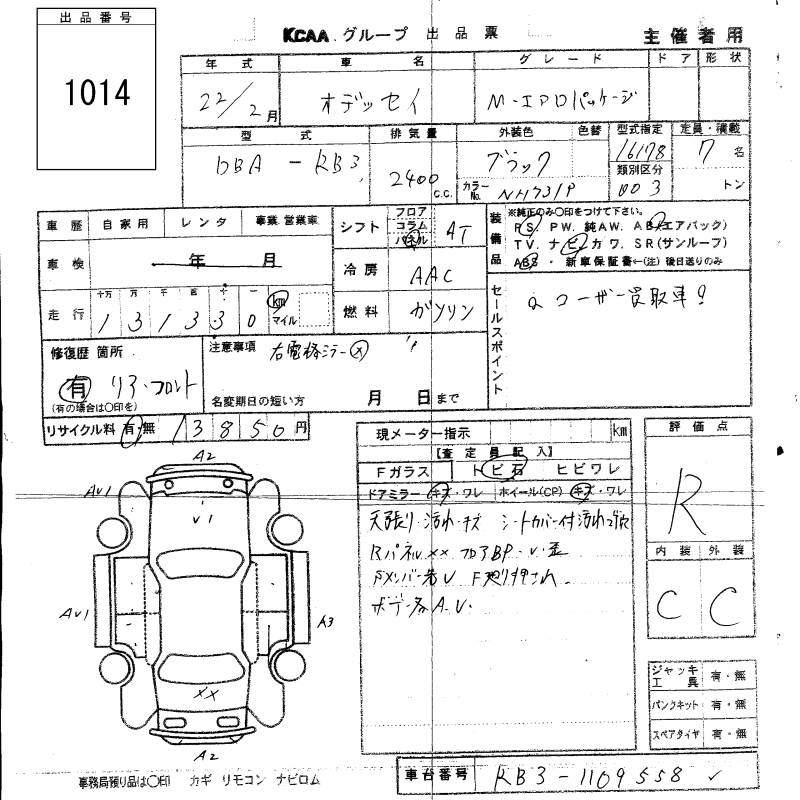 出品番号
1014
KCAA グループ 出品票 主催者用
年式 車名 グレード ドア 形状
22/2月 オデッセイ M・エアロパッケージ
型式 排気量 外装色 色替 型式指定 定員・積載
DBA-RB3 2400 c.c. ブラック 16178 7名
類別区分
カラーNo. NH731P 003 トン
車歴 自家用 レンタ 事業 営業車
車検 年 月
走行 十万 万 千 百 十 一
131330 km マイル
シフト フロア コラム パネル AT
冷房 AAC
燃料 ガソリン
装備品 ※純正のみ〇印をつけて下さい。
PS. PW. 純AW. AB(エアバック)
TV. ナビ. カワ. SR(サンルーフ)
ABS・新車保証書←(注)後日送りのみ
セールスポイント
ユーザー買取車!
修復歴 箇所
有 リア・フロント
(有の場合は〇印を)
注意事項 右電格ミラー(×)
名変期日の短い方 月 日まで
リサイクル料 有 無 13850円
現メーター指示 km
【査定員記入】
Fガラス トビ石 ヒビワレ
ドアミラー キズ・ワレ ホイール(CP) キズ・ワレ
天張り・汚れ・キズ シートカバー付汚れ
Rパネル××
ボデー各A.U.
評価点
R
内装 外装
C C
ジャッキ工具 有・無
パンクキット 有・無
スペアタイヤ 有・無
A2
AV1
V1
AV1
A3
××
A2
事務局預り品は〇印 カギ リモコン ナビロム
車台番号 RB3-1109558